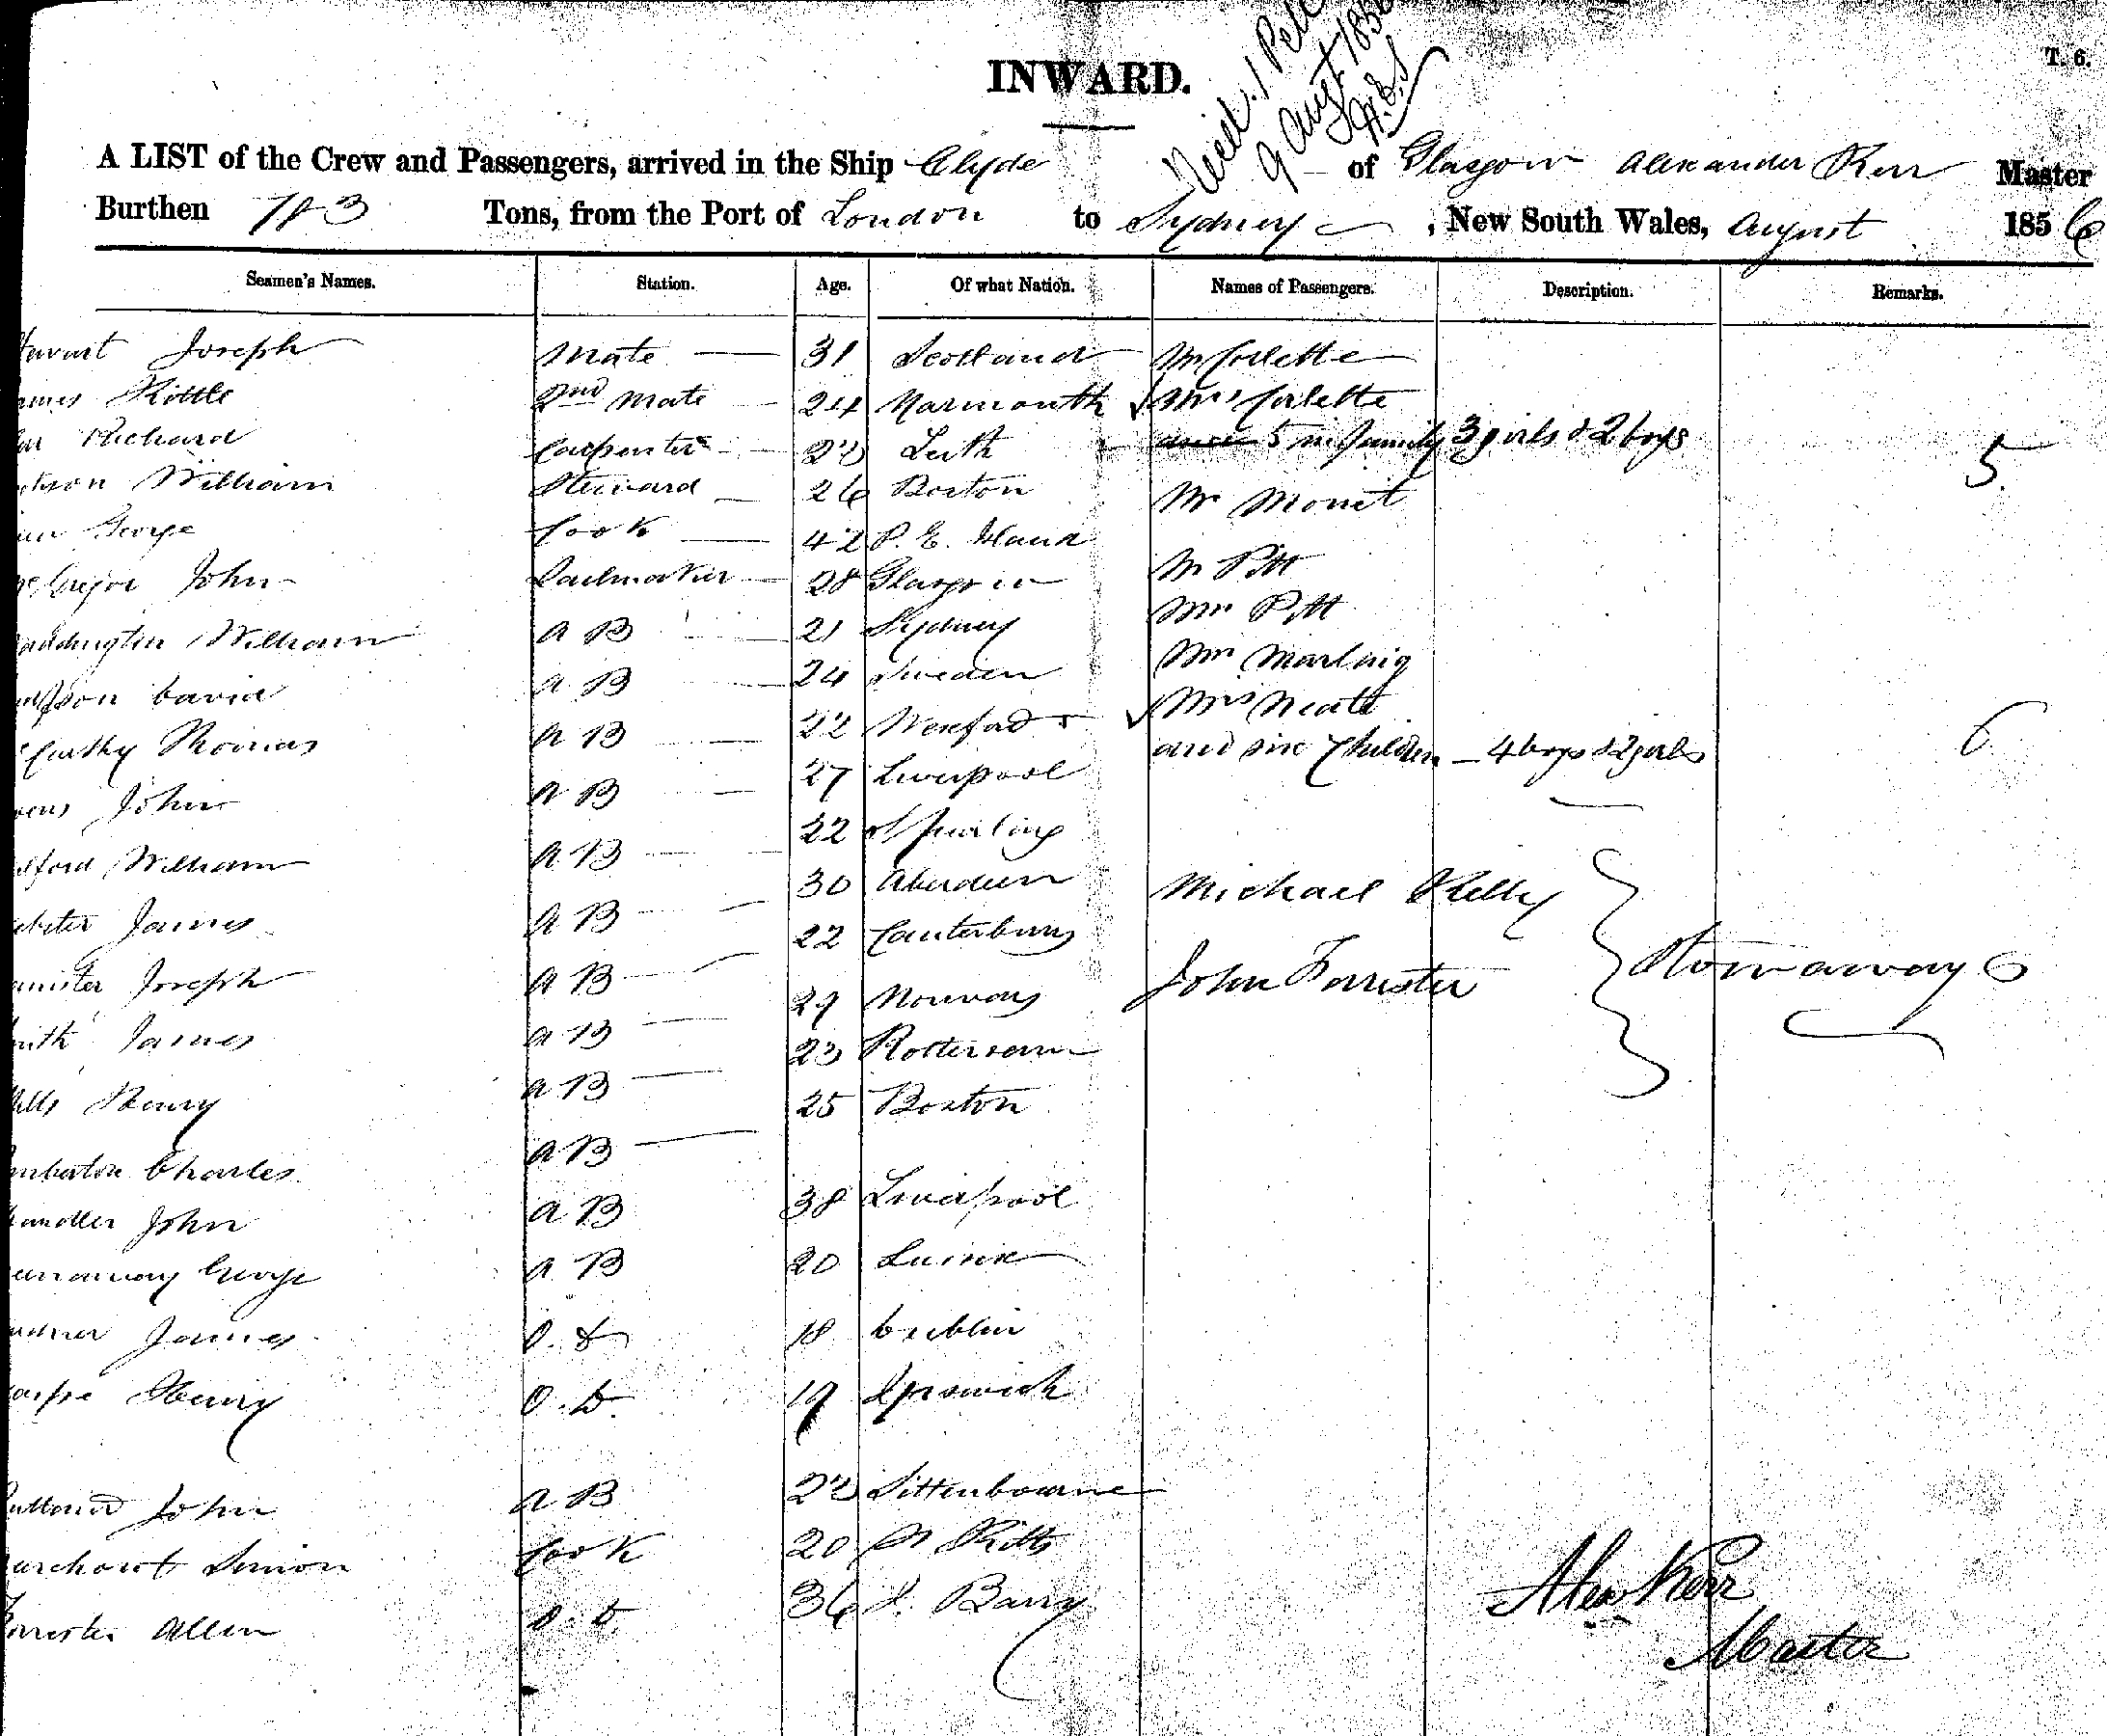 T. 6.
INWARD.
9 August 1856
A LIST of the Crew and Passengers, arrived in the Ship Clyde of Glasgow Alexander Kerr Master
Burthen 783 Tons, from the Port of London to Sydney, New South Wales, August 1856
Seamen's Names. Station. Age. Of what Nation. Names of Passengers. Description. Remarks.
Joseph Mate 31 Scotland Mr Corlette
Kittle 2nd Mate 24 Yarmouth Mrs Corlette
Richard Carpenter 23 Leith 5 in family 3 girls & 2 boys 5
William Steward 26 Boston Mr Monet
George Cook 42 P. E. Island
McGregor John Sailmaker 28 Glasgow Mr Pitt
addington William A B 21 Sydney Mrs Pitt
David A B 24 Sweden Mrs
Carthy Thomas A B 22 Wexford Mrs Neatt
John A B 27 Liverpool and six Children - 4 boys & 2 girls 6
lford William A B 22
ebster James A B 30 Aberdeen Michael Kelly
annister Joseph A B 22 Canterbury
mith James A B 29 Norway John Forrester Stowaways
Henry A B 23 Rotterdam
mberton Charles A B 25 Boston
handler John A B 38 Liverpool
annaway George A B 20
ardner James O. S 18 Dublin
Henry O. S. 19 Ipswich
John A B 23 Sittenbourne
Simon Cook 20 St Kitts
orrester Allen O. S. 36 Barry
Alex Kerr
Master